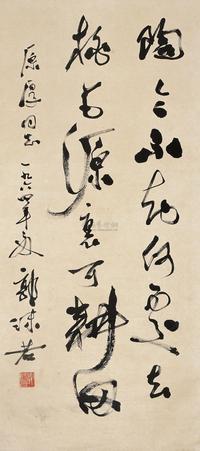 陶令不知何處去
桃花源裏可耕田
同志 一九六四年夏 郭沫若